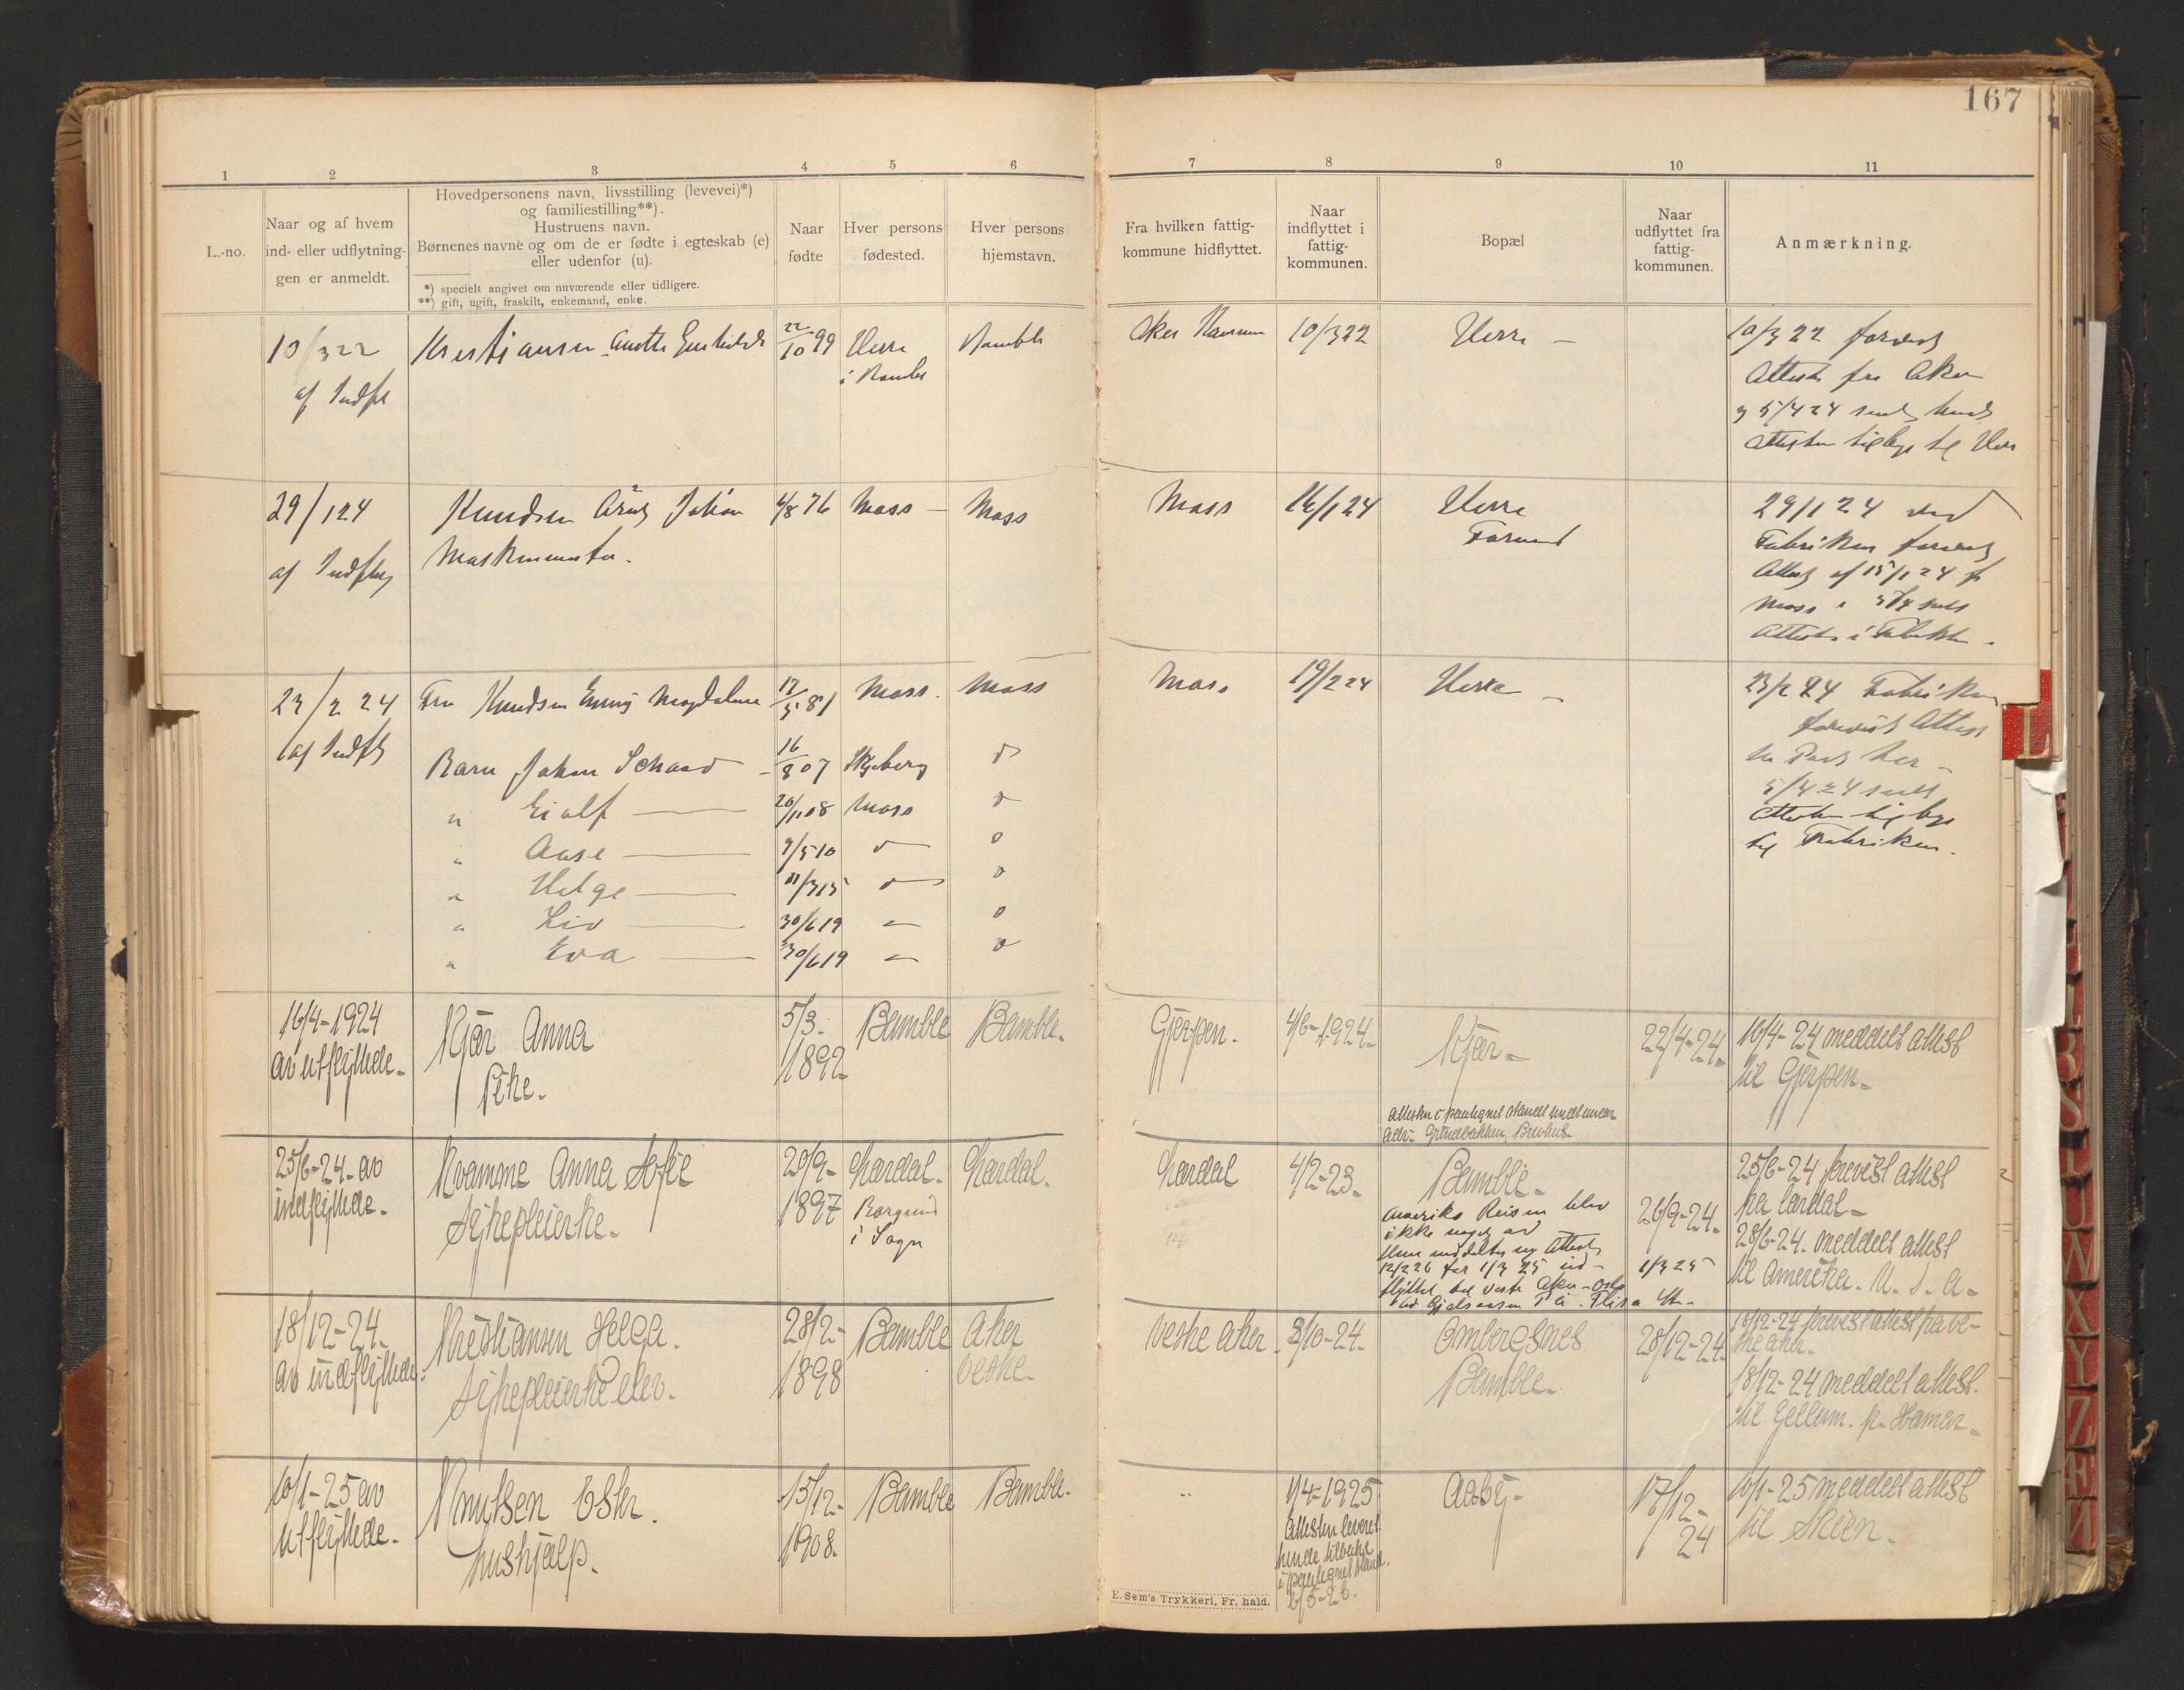 167
1 2 3 4 5 6 7 8 9 10 11
L.-no.
Naar og af hvem
ind- eller udflytnin-
gen er anmeldt.
Hovedpersonens navn, livsstilling (levevei)*)
og familiestilling**).
Hustruens navn.
Børnenes navne og om de er fødte i egteskab (e)
eller udenfor (u).
*) specielt angivet om nuværende eller tidligere.
**) gift, ugift, fraskilt, enkemand, enke.
Naar
fødte
Hver persons
fødested.
Hver persons
hjemstavn.
Fra hvilken fattig-
kommune hidflyttet.
Naar
indflyttet i
fattig-
kommunen.
Bopæl
Naar
udflyttet fra
fattig-
kommunen.
Anmærkning.
10/3 22
af Indfl
Kristiansen Anette
22/10 99
Herre
i Bamble
Bamble
Aker
10/3 22
Herre –
10/3 22 forevist
Attest fra Aker
5/4 24 sendt
Attesten tilbage til Herre
29/1 24
af Indflyt
Knudsen Johan
Maskinmester.
4/8 76
Moss –
Moss
Moss
16/1 24
Herre
29/1 24 ved
Fabriken forevist
Attest af 15/1 24 fr
Moss
Attesten i
23/2 24
af Indflyt
Fru Knudsen Emmy Magdalene
17/5 81
Moss.
Moss
Moss
19/2 24
Herre –
23/2 24 Fabriken
forevist Attest
5/4 24 sendt
Attesten tilbage
til Fabriken.
Barn Johan Schaad –
16/8 07
Skjeberg
do
" Eialf —
20/11 08
Moss
do
" Aase —
9/5 10
do
" Helge —
11/3 15
do
" Liv —
30/6 19
" Eva —
30/6 19
16/4-1924
av utflyttede.
Kjær Anna
Pike.
5/3-
1892
Bamble
Bamble.
Gjerpen.
4/6-1924.
Kjær –
Attesten i paategnet stand sendt
Grindbakken, Brevhus.
22/4-24.
16/4-24 meddelt attest
til Gjerpen –
25/6-24. av
indflyttede.
Kvamme Anna Sofie
Sykepleierske.
29/9-
1897
Lardal.
Borgund
i Sogn
Lardal.
Lardal
4/2-23.
Bamble –
Amerika Reisen blev
ikke noget av
Hun meddeltes ny Attest
12/2 26 for 1/3 25 ud-
flyttet til Vestre Aker – Oslo
26/9-24.
1/3 25
25/6-24 forevist attest
fra Lardal –
28/6-24. meddelt attest
til Amerika. U. S. A –
18/12-24.
av indflyttede.
Kristiansen Helga.
Sykepleierske elev.
28/2-
1898
Bamble
Aker
Vestre.
Vestre Aker.
3/10-24.
Ombergsnes
Bamble.
28/12-24
18/12-24 forevist attest fra Ve-
stre Aker.
18/12-24 meddelt attest.
til p. Hamar –
10/1-25 av
utflyttede.
Knutsen Ester.
hushjælp.
15/12-
1908.
Bamble
Bamble.
1/4-1925
Attesten leveret
hende tilbake
i paategnet stand.
6/5-26.
Aaby –
17/12-
24
10/1-25 meddelt attest
til Skien.
E. Sem's Trykkeri, Fr. hald.
L
R
S
T
U
W
X
Y
Z
Æ
Ø